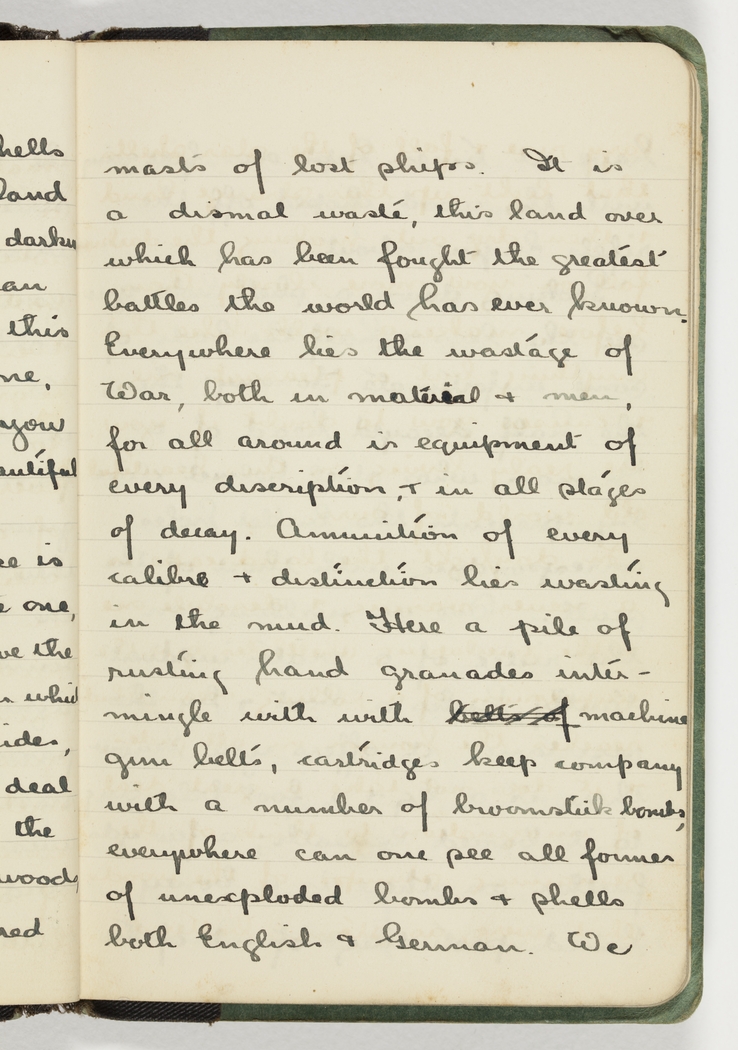 hells
land
darkn
an
this
ne,
you
autiful
e is
e one,
ve the
n whic
ides,
deal
the
woods
red
masts of lost ships. It is
a dismal waste, this land over
which has been fought the greatest
battles the world has ever known.
Everywhere lies the wastage of
War, both in material & men,
for all around is equipment of
every discription, & in all stages
of decay. Ammunition of every
calibre & distinction lies wasting
in the mud. Here a pile of
rusting hand granades inter-
mingle with with belts of machine
gun belts, cartridges keep company
with a number of broomstick bombs,
everywhere can one see all formes
of unexploded bombs & shells
both English & German. We